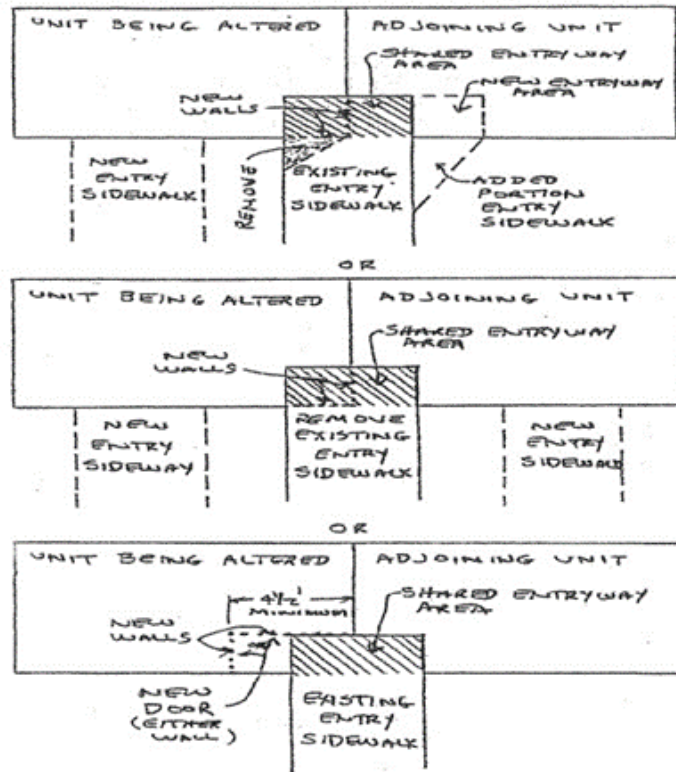 UNIT BEING ALTERED
ADJOINING UNIT
SHARED ENTRYWAY
AREA
NEW ENTRYWAY
AREA
NEW
WALLS
NEW
ENTRY
SIDEWALK
REMOVE
EXISTING
ENTRY
SIDEWALK
ADDED
PORTION
ENTRY
SIDEWALK
OR
UNIT BEING ALTERED
ADJOINING UNIT
SHARED ENTRYWAY
AREA
NEW
WALLS
NEW
ENTRY
SIDEWAY
REMOVE
EXISTING
ENTRY
SIDEWALK
NEW
ENTRY
SIDEWALK
OR
UNIT BEING ALTERED
ADJOINING UNIT
4½'
MINIMUM
SHARED ENTRYWAY
AREA
NEW
WALLS
NEW
DOOR
(EITHER
WALL)
EXISTING
ENTRY
SIDEWALK